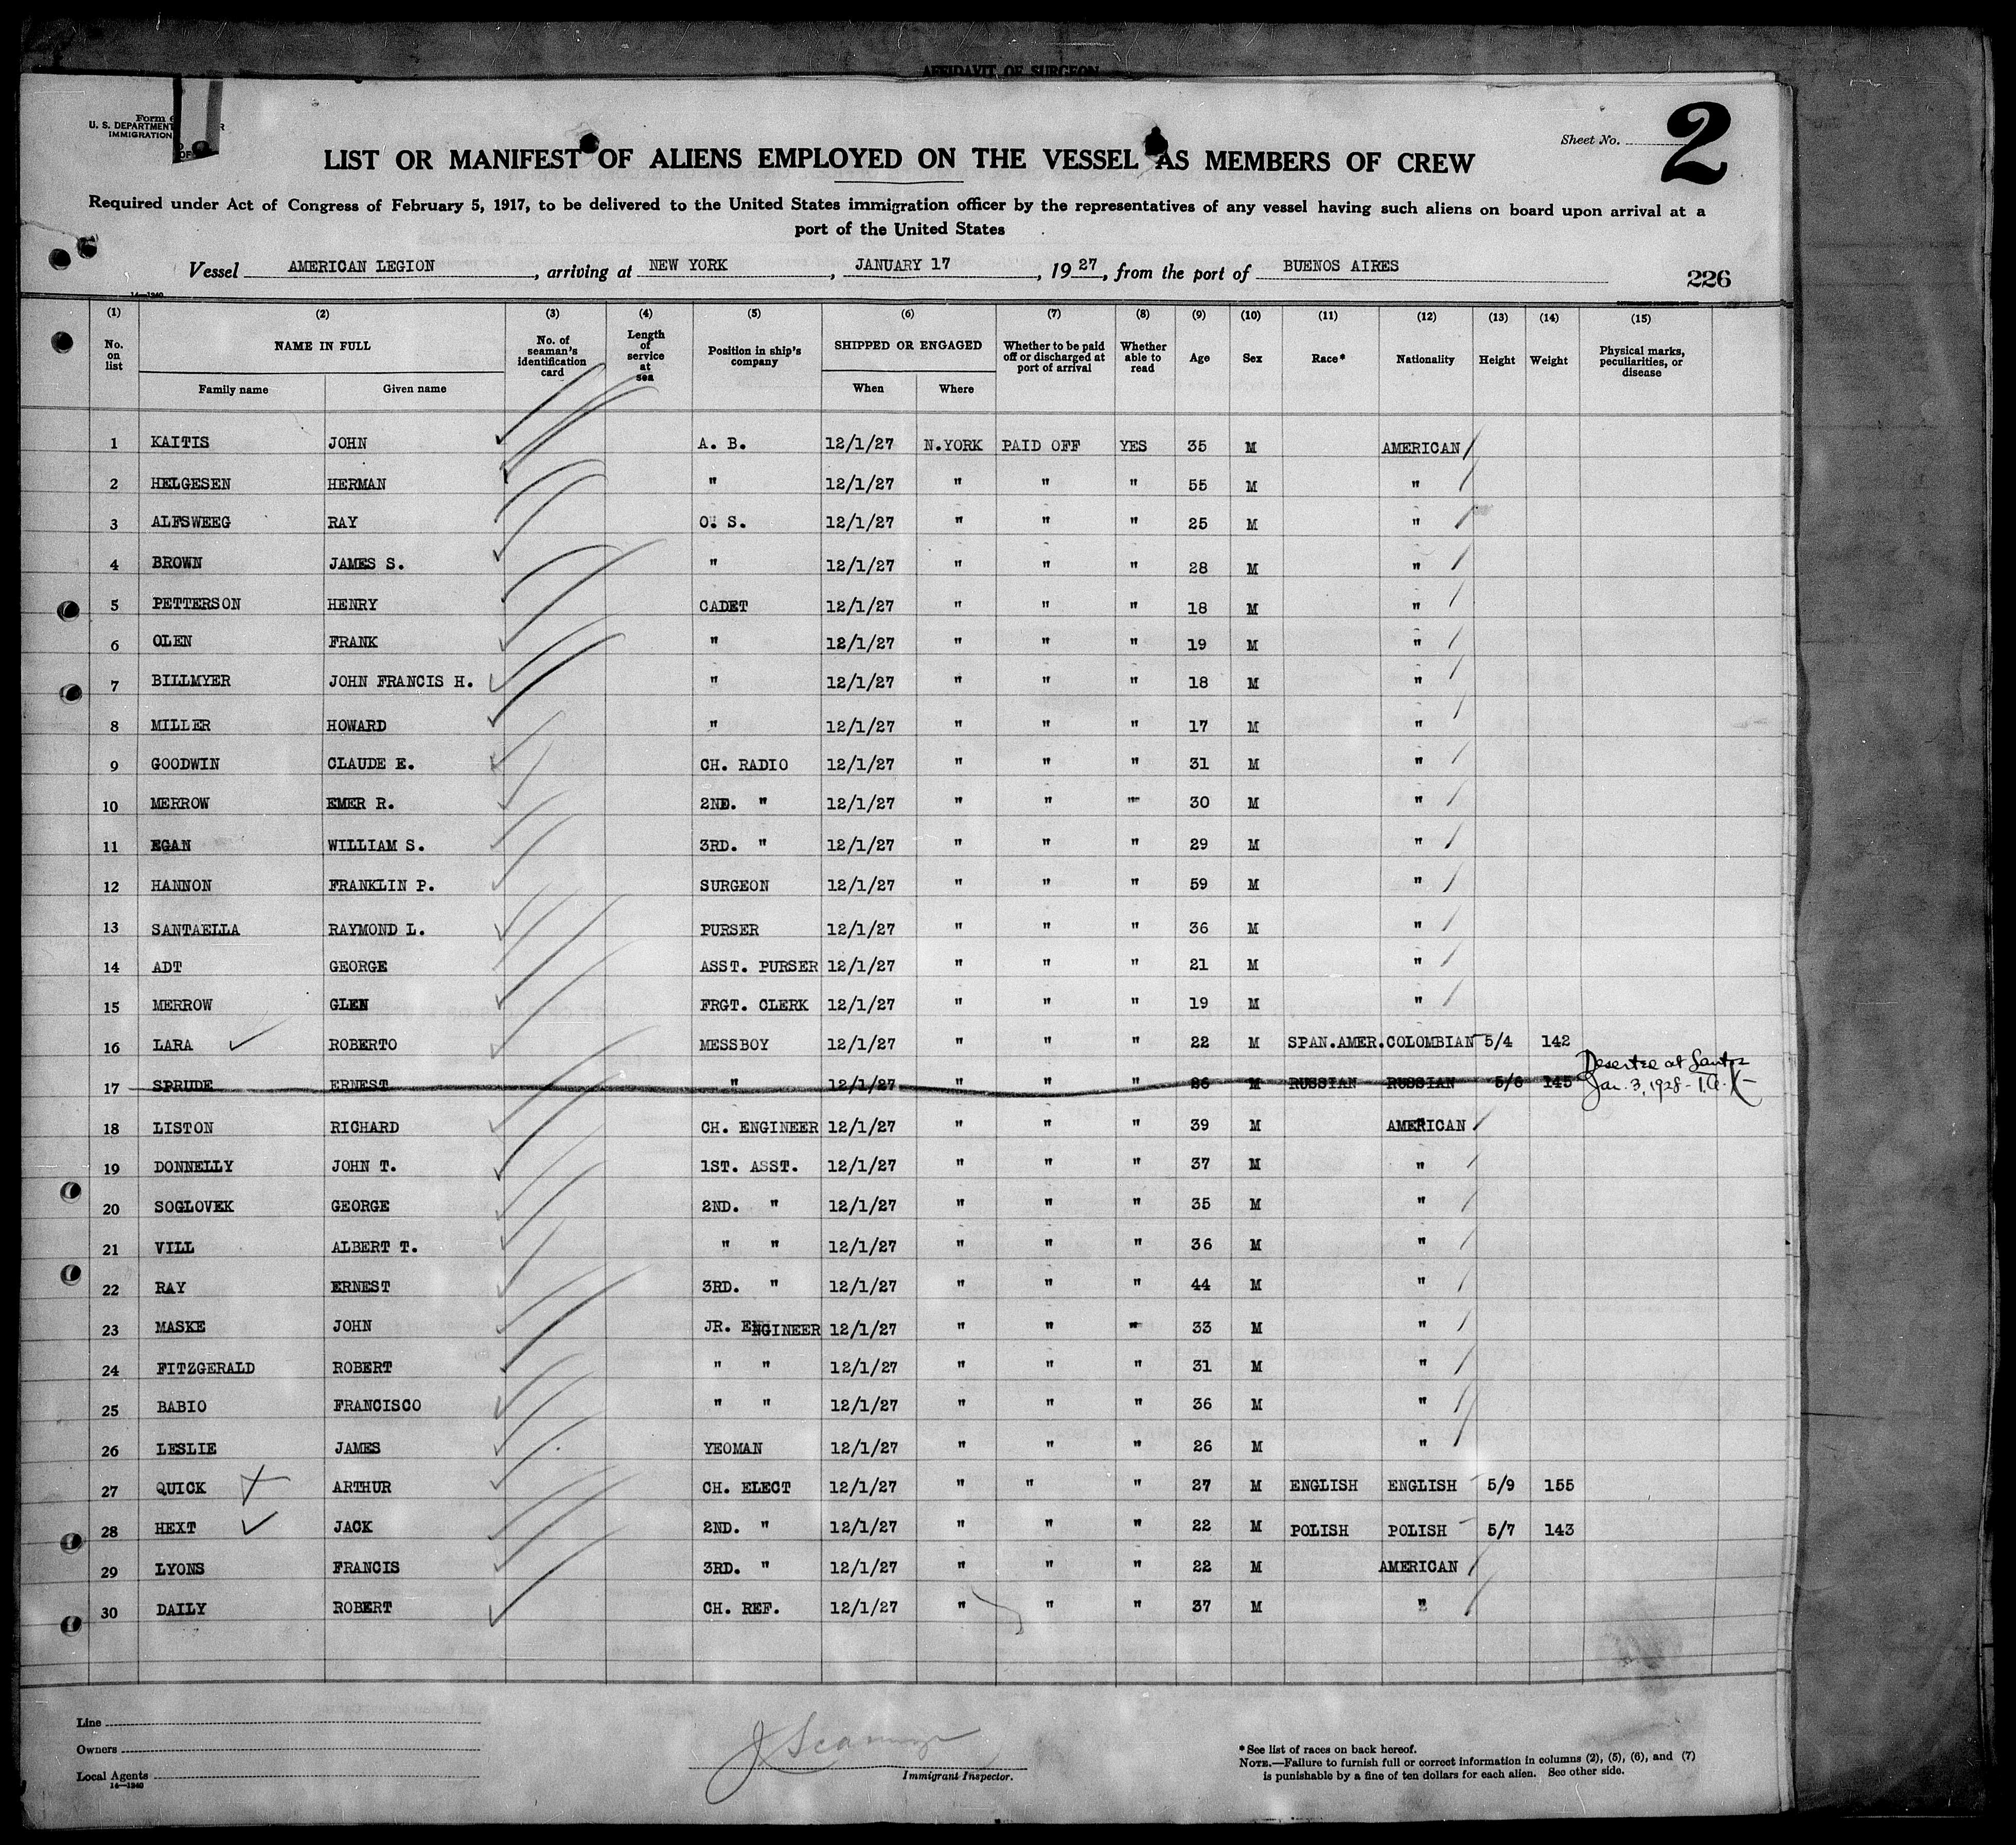 AFFIDAVIT OF SURGEON
Form
U. S. DEPARTMENT
IMMIGRATION
Sheet No. 2
LIST OR MANIFEST OF ALIENS EMPLOYED ON THE VESSEL AS MEMBERS OF CREW
Required under Act of Congress of February 5, 1917, to be delivered to the United States immigration officer by the representatives of any vessel having such aliens on board upon arrival at a
port of the United States
Vessel AMERICAN LEGION, arriving at NEW YORK, JANUARY 17, 1927, from the port of BUENOS AIRES
226
14—1240
(1) (2) (3) (4) (5) (6) (7) (8) (9) (10) (11) (12) (13) (14) (15)
No. on list NAME IN FULL No. of seaman's identification card Length of service at sea Position in ship's company SHIPPED OR ENGAGED Whether to be paid off or discharged at port of arrival Whether able to read Age Sex Race* Nationality Height Weight Physical marks, peculiarities, or disease
Family name Given name When Where
1 KAITIS JOHN A. B. 12/1/27 N.YORK PAID OFF YES 35 M AMERICAN
2 HELGESEN HERMAN " 12/1/27 " " " 55 M "
3 ALFSWEEG RAY O. S. 12/1/27 " " " 25 M "
4 BROWN JAMES S. " 12/1/27 " " " 28 M "
5 PETTERSON HENRY CADET 12/1/27 " " " 18 M "
6 OLEN FRANK " 12/1/27 " " " 19 M "
7 BILLMYER JOHN FRANCIS H. " 12/1/27 " " " 18 M "
8 MILLER HOWARD " 12/1/27 " " " 17 M "
9 GOODWIN CLAUDE E. CH. RADIO 12/1/27 " " " 31 M "
10 MERROW EMER R. 2ND. " 12/1/27 " " " 30 M "
11 EGAN WILLIAM S. 3RD. " 12/1/27 " " " 29 M "
12 HANNON FRANKLIN P. SURGEON 12/1/27 " " " 59 M "
13 SANTAELLA RAYMOND L. PURSER 12/1/27 " " " 36 M "
14 ADT GEORGE ASST. PURSER 12/1/27 " " " 21 M "
15 MERROW GLEN FRGT. CLERK 12/1/27 " " " 19 M "
16 LARA ROBERTO MESSBOY 12/1/27 " " " 22 M SPAN.AMER. COLOMBIAN 5/4 142
17 SPRUDE ERNEST " 12/1/27 " " " 26 M RUSSIAN RUSSIAN 5/6 145 Deserted at Santos
Jan. 3, 1928
18 LISTON RICHARD CH. ENGINEER 12/1/27 " " " 39 M AMERICAN
19 DONNELLY JOHN T. 1ST. ASST. 12/1/27 " " " 37 M "
20 SOGLOVEK GEORGE 2ND. " 12/1/27 " " " 35 M "
21 VILL ALBERT T. " " 12/1/27 " " " 36 M "
22 RAY ERNEST 3RD. " 12/1/27 " " " 44 M "
23 MASKE JOHN JR. ENGINEER 12/1/27 " " " 33 M "
24 FITZGERALD ROBERT " " 12/1/27 " " " 31 M "
25 BABIO FRANCISCO " " 12/1/27 " " " 36 M "
26 LESLIE JAMES YEOMAN 12/1/27 " " " 26 M "
27 QUICK ARTHUR CH. ELECT 12/1/27 " " " 27 M ENGLISH ENGLISH 5/9 155
28 HEXT JACK 2ND. " 12/1/27 " " " 22 M POLISH POLISH 5/7 143
29 LYONS FRANCIS 3RD. " 12/1/27 " " " 22 M AMERICAN
30 DAILY ROBERT CH. REF. 12/1/27 " " " 37 M "
Line
Owners
Local Agents
14—1240
Immigrant Inspector.
*See list of races on back hereof.
NOTE.—Failure to furnish full or correct information in columns (2), (5), (6), and (7)
is punishable by a fine of ten dollars for each alien. See other side.